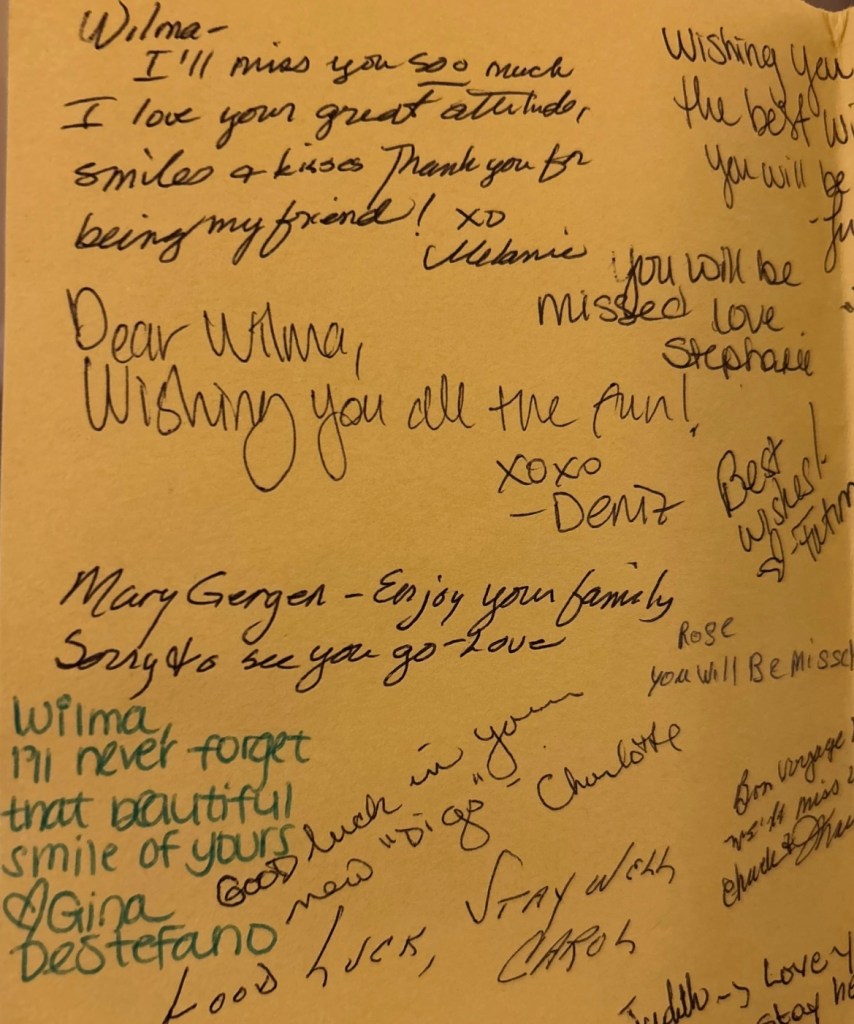 Wilma-
I'll miss you soo much
I love your great attitude,
smiles & kisses Thank you for
being my friend! XO
Melanie
Wishing you
the best
you will be
You will be
missed love
Stephanie
Dear Wilma,
Wishing you all the fun!
XOXO
-Deniz
Best
wishes!
Mary Gergen - Enjoy your family
Sorry to see you go - Love
Rose
you will Be Missed
Wilma,
I'll never forget
that beautiful
smile of yours
♡ Gina
DeStefano
Good luck in your
new "Digs" - Charlotte
Good Luck, Stay Well
Carol
Bon Voyage
we'll miss
Chuck &
Judith -> Love
stay